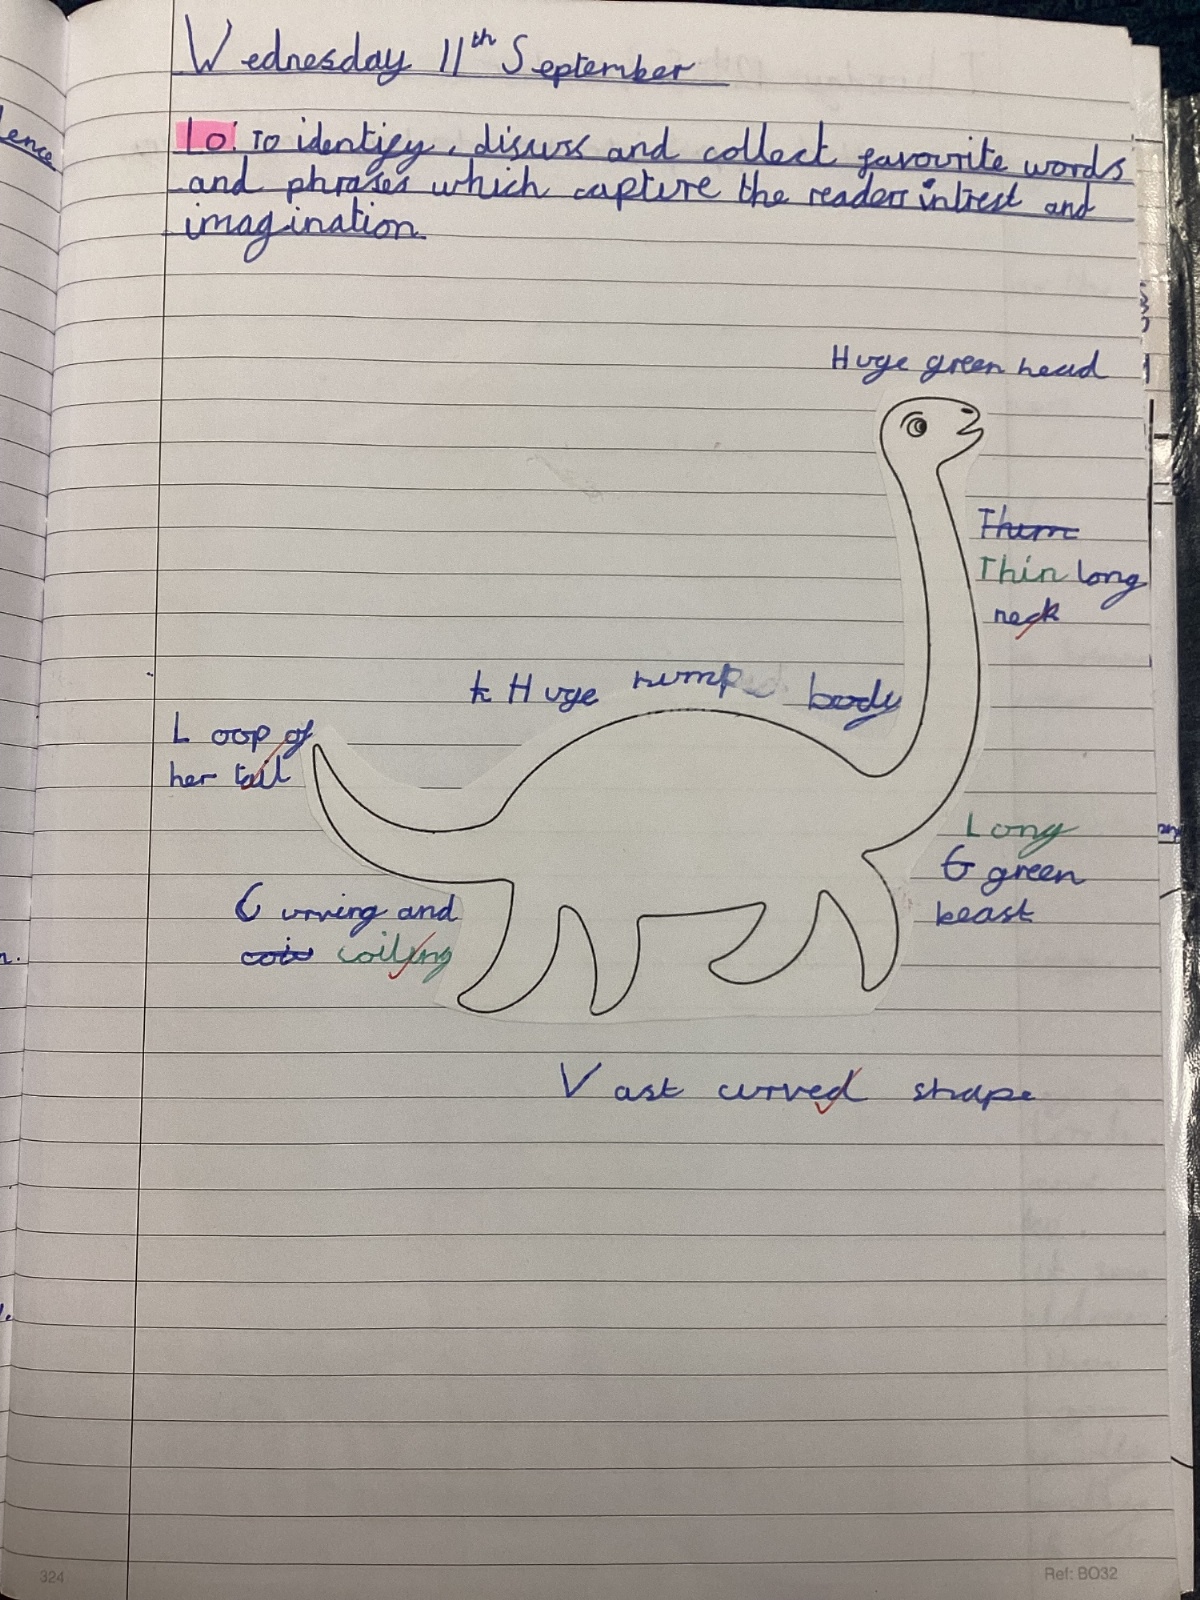 Wednesday 11th September
Lo: To identify, discuss and collect favourite words
and phrases which capture the readers intrest and
imagination
Huge green head
Thin long
neck
Huge hump body
Loop of
her tail
Long
G green
beast
Curving and
coiling
Vast curved shape
lence
324
Ref: BO32